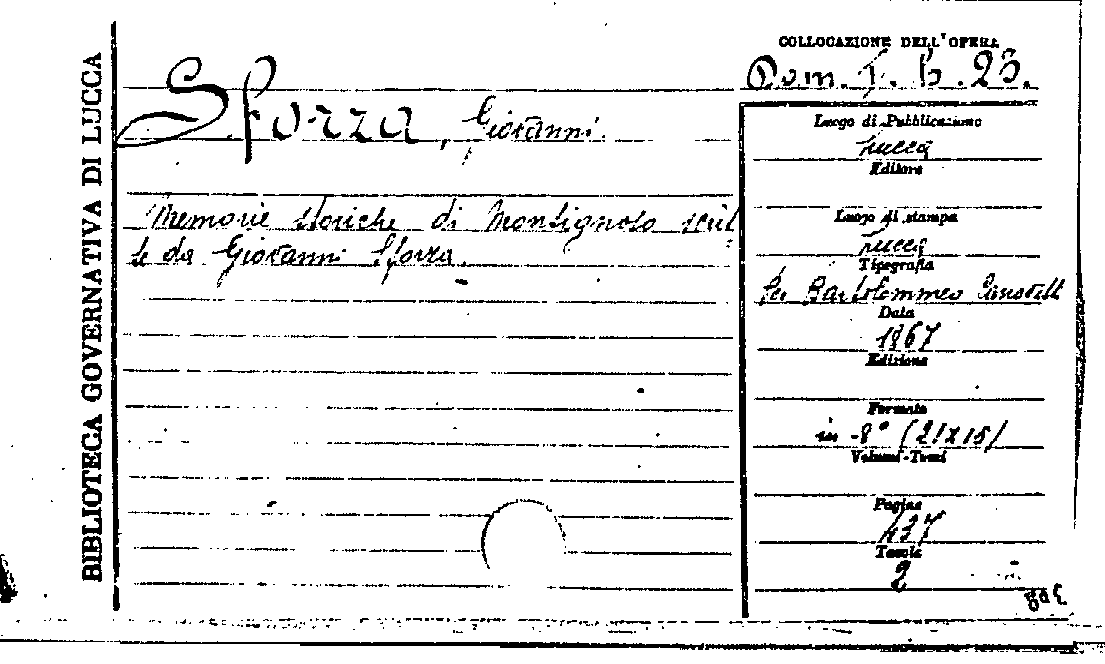 BIBLIOTECA GOVERNATIVA DI LUCCA
Sforza, Giovanni.
Memorie storiche di Montignoso scrit
te da Giovanni Sforza.
COLLOCAZIONE DELL'OPERA
Rom. I. b. 23.
Luogo di Pubblicazione
Lucca
Editore
Luogo di stampa
Lucca
Tipografia
Per Bartolommeo Canovetti
Data
1867
Edizione
Formato
in -8° (21x15)
Volumi-Tomi
Pagine
437
Tavole
2